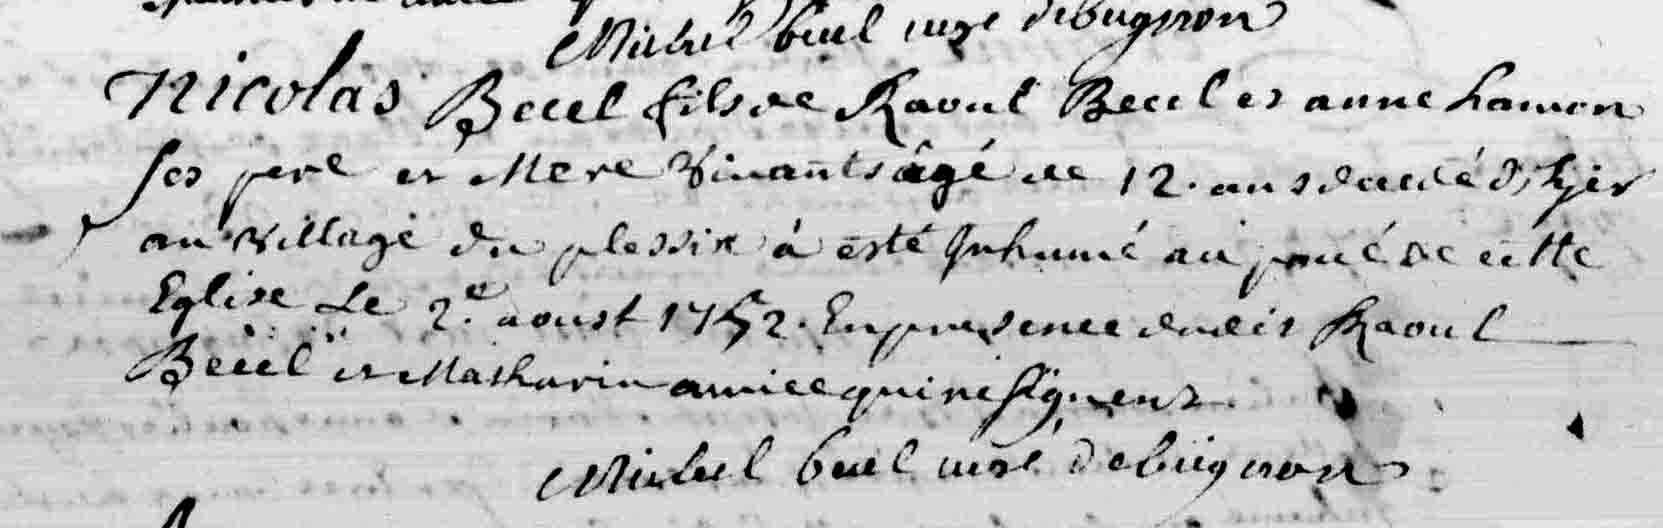 Michel buel curé de bugnon
Nicolas Becel fils de Raoul Becel et anne hamon
ses pere et Mere vivants âgé de 12. ans décédé d'hyer
au village du plessix à esté Inhumé au de cette
Eglise Le 2.e aoust 1752. En presence dudit Raoul
Becel et Mathurin amice qui ne signent.
Michel buel curé de bugnon